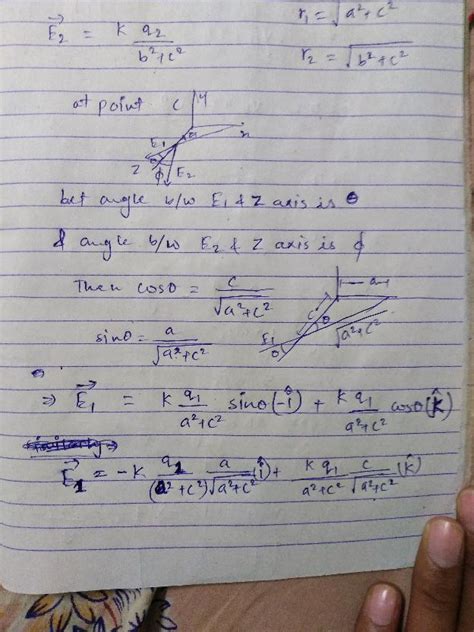 r₁ = √(a²+c²)
E⃗₂ = K q₂/(b²+c²)
r₂ = √(b²+c²)
at point C
y
x
E₁
Z
θ
ϕ
E₂
let angle b/w E₁ & Z axis is θ
& angle b/w E₂ & Z axis is ϕ
Then cosθ = c/√(a²+c²)
a
c
θ
√(a²+c²)
E₁
θ
sinθ = a/√(a²+c²)
⇒ E⃗₁ = K q₁/(a²+c²) sinθ(-î) + K q₁/(a²+c²) cosθ(k̂)
E⃗₁ = -K q₁/(a²+c²) a/√(a²+c²) (î) + K q₁/(a²+c²) c/√(a²+c²) (k̂)